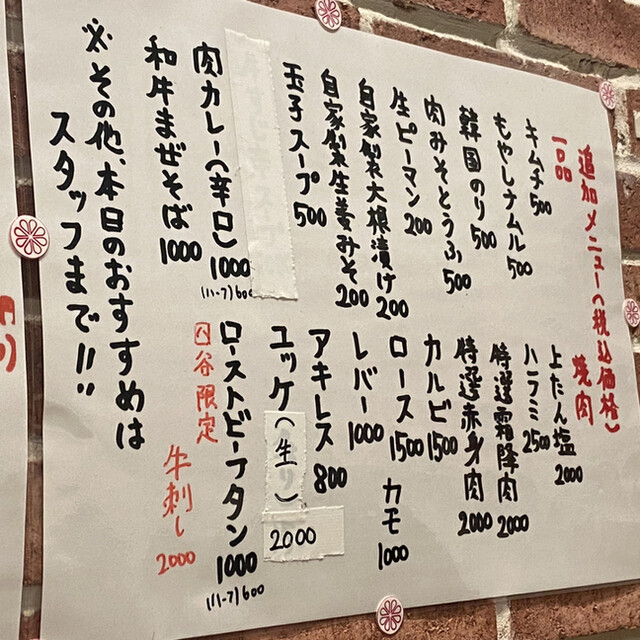 追加メニュー(税込価格)
一品
キムチ 500
もやしナムル 500
韓国のり 500
肉みそとうふ 500
生ピーマン 200
自家製大根漬け 200
自家製生姜みそ 200
玉子スープ 500
肉カレー(辛口) 1000
(ハーフ)600
和牛まぜそば 1000
焼肉
上たん塩 2000
ハラミ 2500
特選霜降肉 2000
特選赤身肉 2000
カルビ 1500
ロース 1500
カモ 1000
レバー 1000
アキレス 800
ユッケ(生) 2000
ローストビーフタン 1000
(ハーフ)600
谷限定
牛刺し 2000
※その他、本日のおすすめは
スタッフまで!!
円